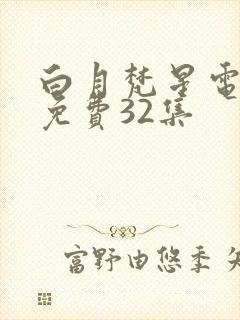 白月梵星電
免費32集
富野由悠季 矢